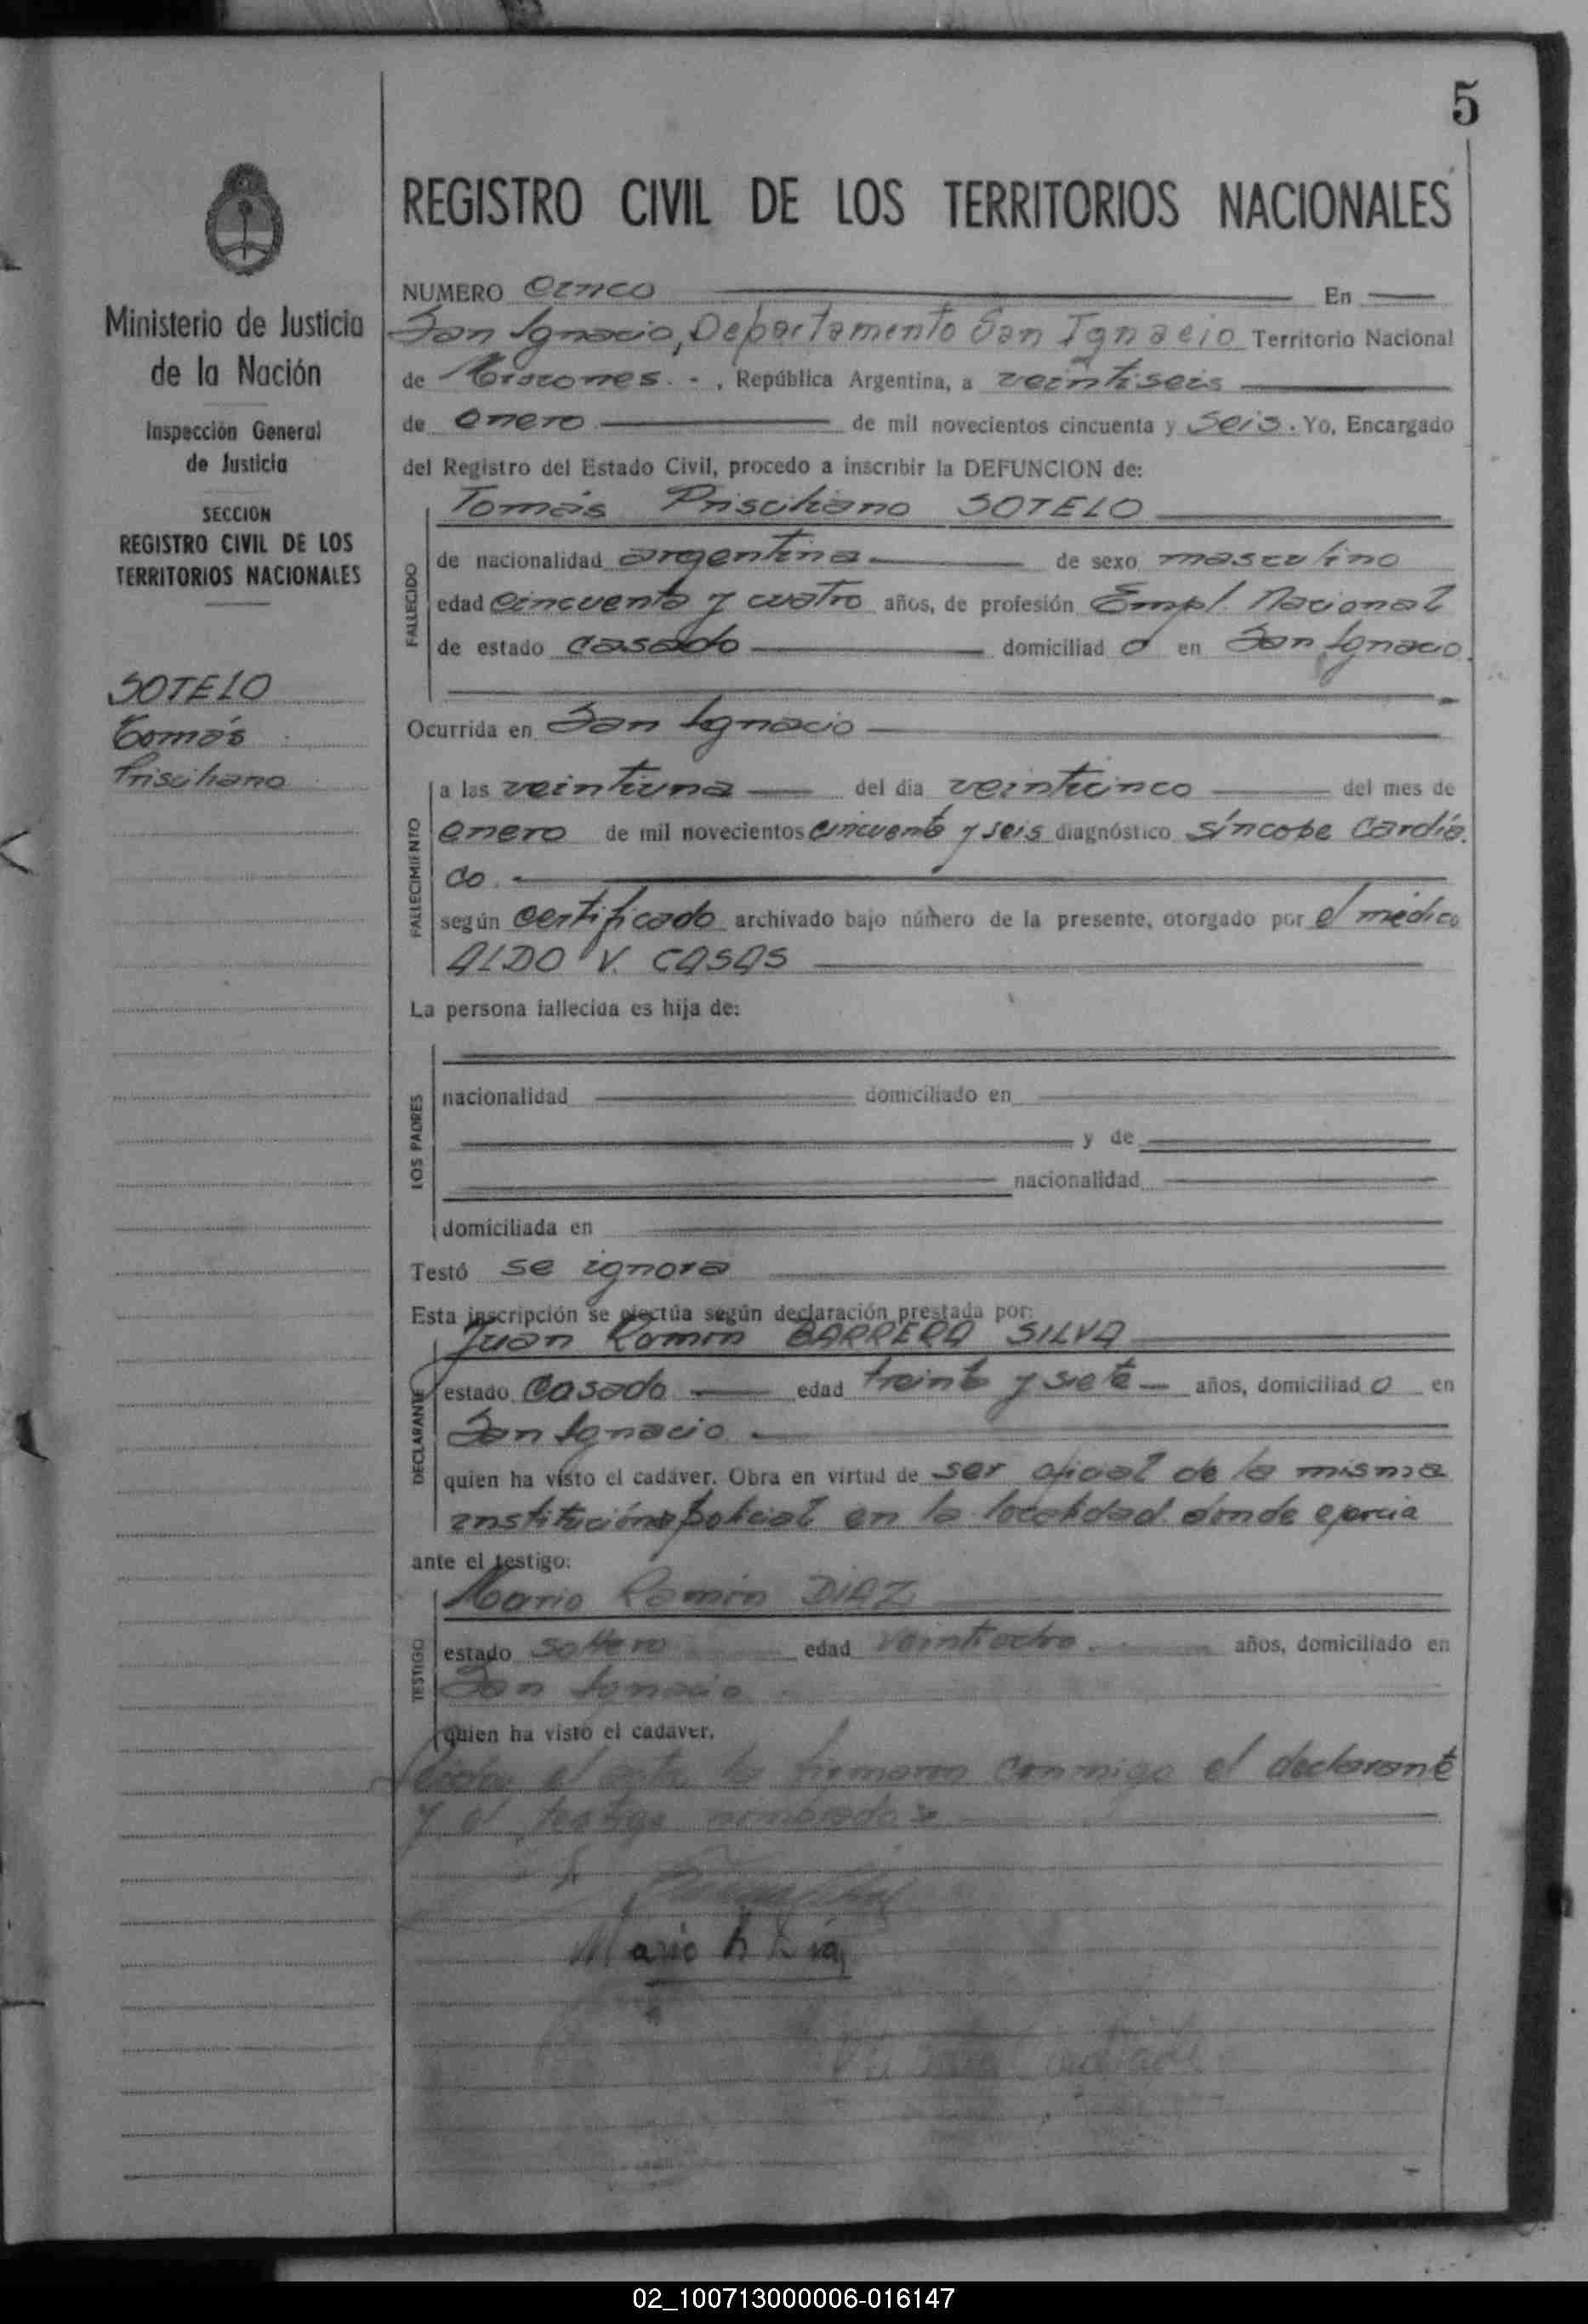 5
REGISTRO CIVIL DE LOS TERRITORIOS NACIONALES
Ministerio de Justicia
de la Nación
Inspección General
de Justicia
SECCION
REGISTRO CIVIL DE LOS
TERRITORIOS NACIONALES
SOTELO
Tomás
Prisciliano
NUMERO Cinco En
San Ignacio, Departamento San Ignacio Territorio Nacional
de Misiones. - , República Argentina, a veintiseis
de enero de mil novecientos cincuenta y seis. Yo, Encargado
del Registro del Estado Civil, procedo a inscribir la DEFUNCION de:
Tomás Prisciliano SOTELO
FALLECIDO
de nacionalidad argentina de sexo masculino
edad cincuenta y cuatro años, de profesión Empl. Nacional
de estado casado domiciliad o en San Ignacio.
Ocurrida en San Ignacio
FALLECIMIENTO
a las veintiuna del día veinticinco del mes de
enero de mil novecientos cincuenta y seis diagnóstico síncope cardía
co.
según certificado archivado bajo número de la presente, otorgado por el médico
ALDO V. CASAS
La persona fallecida es hija de:
LOS PADRES
nacionalidad domiciliado en
y de
nacionalidad
domiciliada en
Testó se ignora
Esta inscripción se efectúa según declaración prestada por:
Juan Ramón BARRERA SILVA
DECLARANTE
estado casado edad treinta y siete años, domiciliad o en
San Ignacio
quien ha visto el cadáver. Obra en virtud de ser oficial de la misma
institución policial en la localidad donde ejercia
ante el testigo:
Mario Ramón DIAZ
TESTIGO
estado soltero edad veintiocho años, domiciliado en
San Ignacio
quien ha visto el cadaver.
el acta la firmaron conmigo el declarante
y el testigo nombrados
Mario R Diaz
02_100713000006-016147